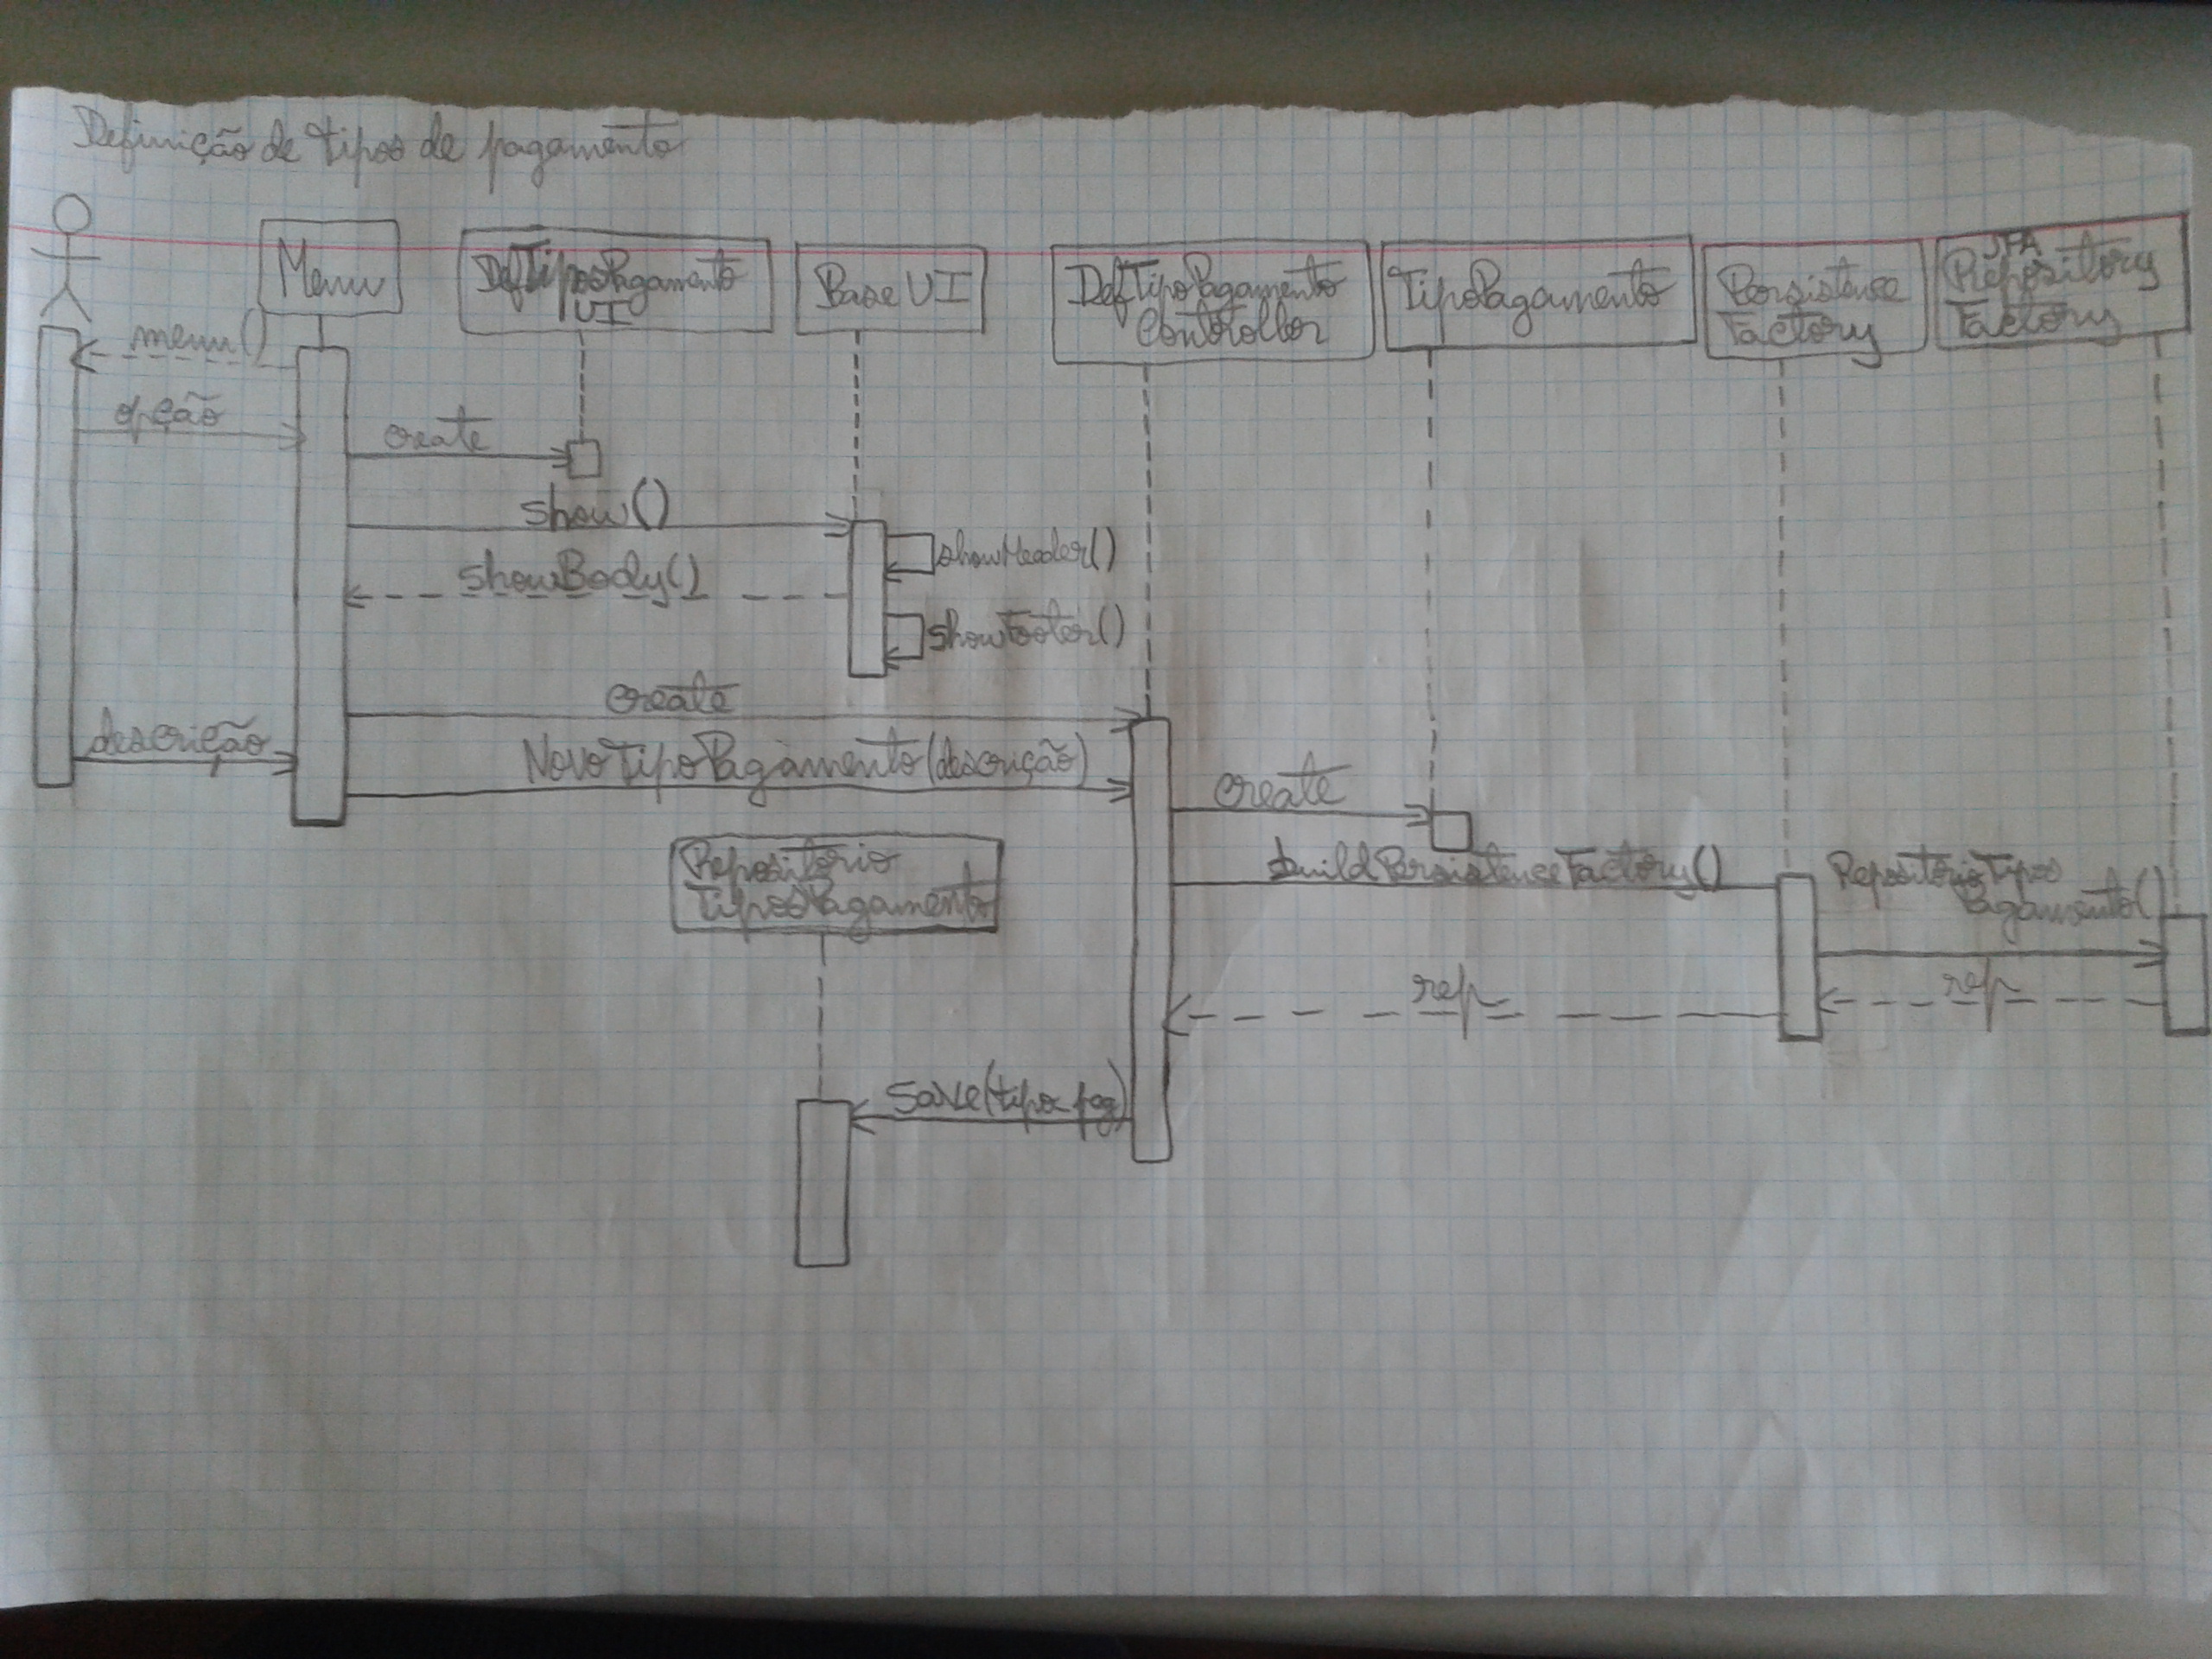 Definição de tipos de pagamento
Menu
DefTiposPagamento
UI
Base UI
DefTipoPagamento
Controller
TipoPagamento
Persistence
Factory
JPA
Repository
Factory
menu()
opção
create
show()
showHeader()
showBody()
showFooter()
create
descrição
NovoTipoPagamento(descrição)
create
Repositório
TiposPagamento
buildPersistenceFactory()
RepositórioTipos
Pagamento()
rep
rep
Save(tipo pag)